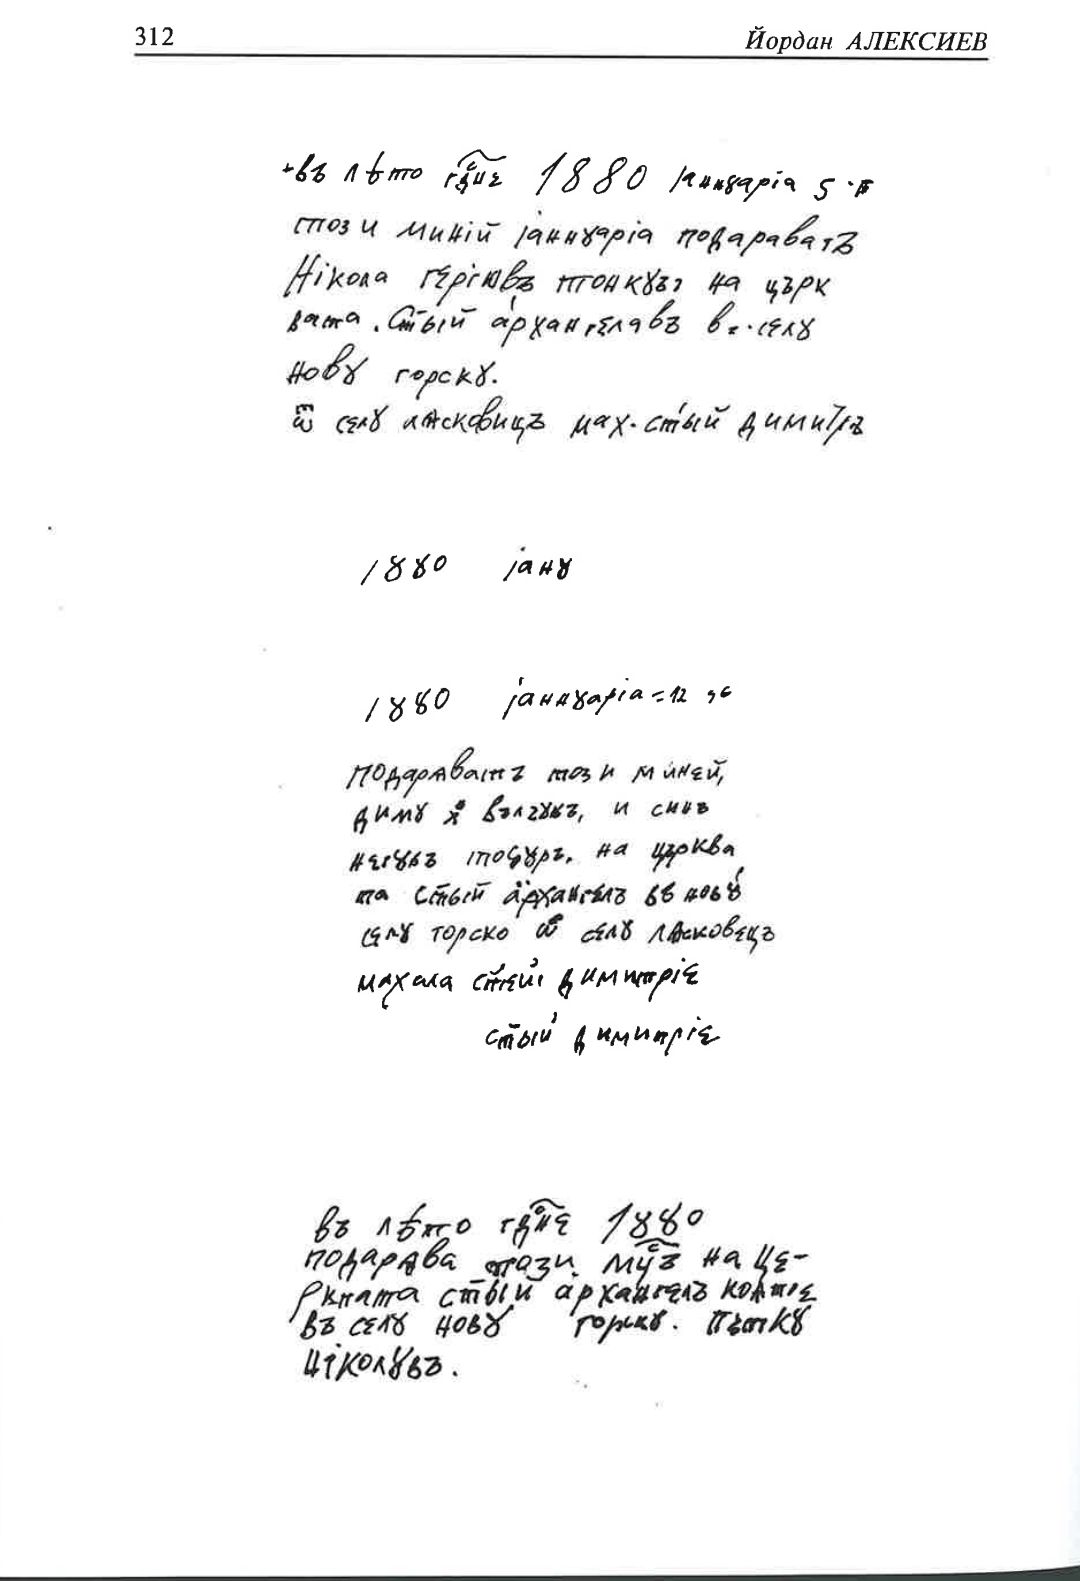 312 Йордан АЛЕКСИЕВ
въ лѣто гд҃не 1880 іаннꙋаріа 5
този миній іаннꙋаріа подараватъ
Нікола гергювъ тонкꙋвъ на църк
вата. Ст҃ый архангелавъ въ. селꙋ
новꙋ горскꙋ.
ѿ селꙋ лѧсковицъ мах. ст҃ый димитръ
1880 іанꙋ
1880 іаннꙋаріа = 12
подарѧватъ този миней,
димꙋ вълчꙋвъ, и синъ
негꙋвъ тодꙋръ, на църква
та ст҃ый архангелъ въ новꙋ
селꙋ горско ѿ селꙋ лѧсковецъ
махала ст҃ей димитріе
ст҃ый димитріе
въ лѣто гд҃не 1880
подарѧва този на це-
ркната ст҃ый архангелъ
въ селꙋ новꙋ горскꙋ. Пѣткꙋ
ніколꙋвъ.